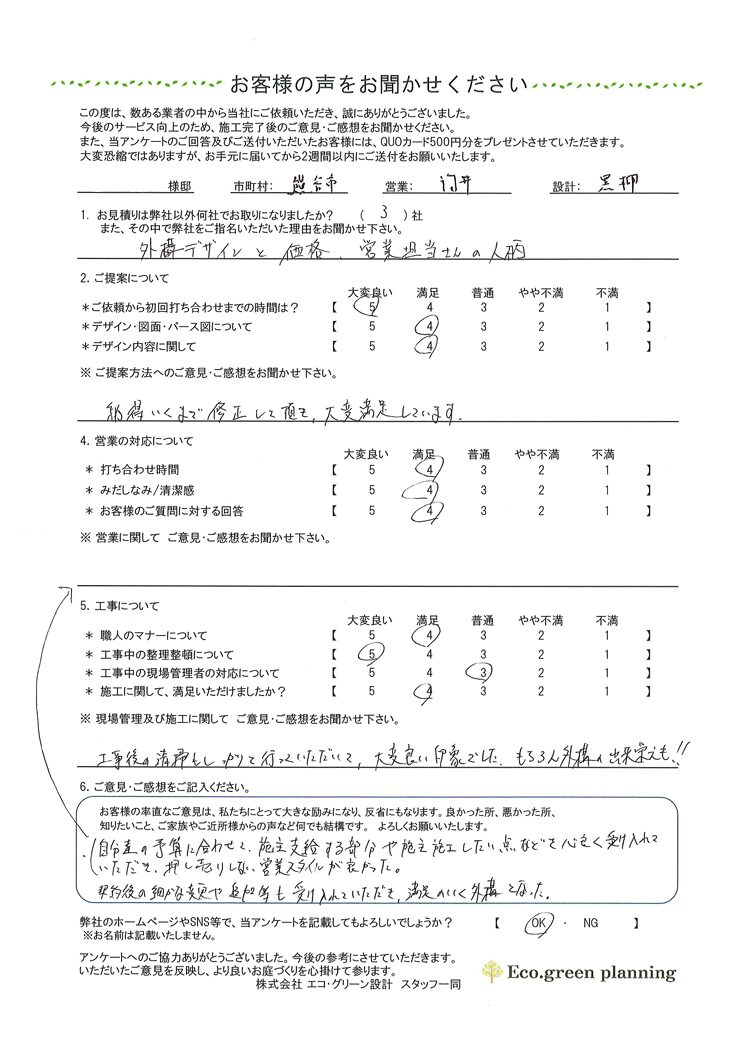 お客様の声をお聞かせください
この度は、数ある業者の中から当社にご依頼いただき、誠にありがとうございました。
今後のサービス向上のため、施工完了後のご意見・ご感想をお聞かせください。
また、当アンケートのご回答及びご送付いただいたお客様には、QUOカード500円分をプレゼントさせていただきます。
大変恐縮ではありますが、お手元に届いてから2週間以内にご送付をお願いいたします。
様邸 市町村: 熊谷市 営業: 設計: 黒柳
1. お見積りは弊社以外何社でお取りになりましたか? ( 3 )社
また、その中で弊社をご指名いただいた理由をお聞かせ下さい。
外構デザインと価格、営業担当さんの人柄
2. ご提案について
大変良い 満足 普通 やや不満 不満
*ご依頼から初回打ち合わせまでの時間は? 【 5 4 3 2 1 】
*デザイン・図面・パース図について 【 5 4 3 2 1 】
*デザイン内容に関して 【 5 4 3 2 1 】
※ ご提案方法へのご意見・ご感想をお聞かせ下さい。
納得いくまで修正して頂き、大変満足しています。
4. 営業の対応について
大変良い 満足 普通 やや不満 不満
* 打ち合わせ時間 【 5 4 3 2 1 】
* みだしなみ/清潔感 【 5 4 3 2 1 】
* お客様のご質問に対する回答 【 5 4 3 2 1 】
※ 営業に関して ご意見・ご感想をお聞かせ下さい。
5. 工事について
大変良い 満足 普通 やや不満 不満
* 職人のマナーについて 【 5 4 3 2 1 】
* 工事中の整理整頓について 【 5 4 3 2 1 】
* 工事中の現場管理者の対応について 【 5 4 3 2 1 】
* 施工に関して、満足いただけましたか? 【 5 4 3 2 1 】
※ 現場管理及び施工に関して ご意見・ご感想をお聞かせ下さい。
工事後の清掃もしっかりと行っていただいて、大変良い印象でした。もちろん外構の出来栄えも!!
6. ご意見・ご感想をご記入ください。
お客様の率直なご意見は、私たちにとって大きな励みになり、反省にもなります。良かった所、悪かった所、
知りたいこと、ご家族やご近所様からの声など何でも結構です。 よろしくお願いいたします。
自分達の予算に合わせて、施主支給する部分や施主施工したい点などを心良く受け入れて
いただき、押し売りしない営業スタイルが良かった。
契約後の細かな変更や追加等も受け入れていただき、満足のいく外構となった。
弊社のホームページやSNS等で、当アンケートを記載してもよろしいでしょうか? 【 OK ・ NG 】
※お名前は記載いたしません。
アンケートへのご協力ありがとうございました。今後の参考にさせていただきます。
いただいたご意見を反映し、より良いお庭づくりを心掛けて参ります。
株式会社 エコ・グリーン設計 スタッフ一同
Eco.green planning